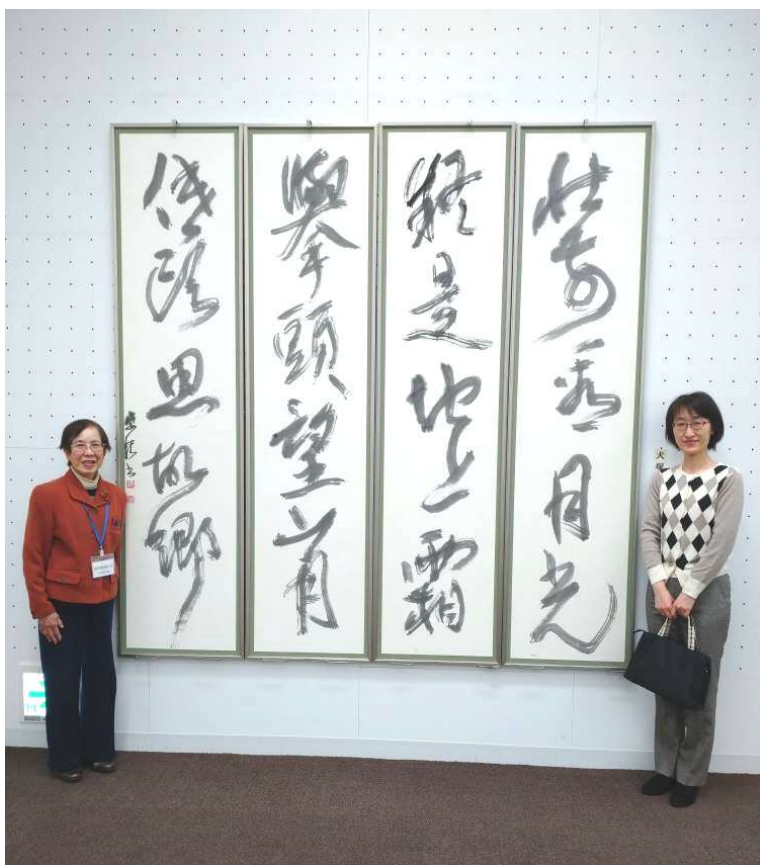 牀前看月光
疑是地上霜
擧頭望山月
低頭思故郷